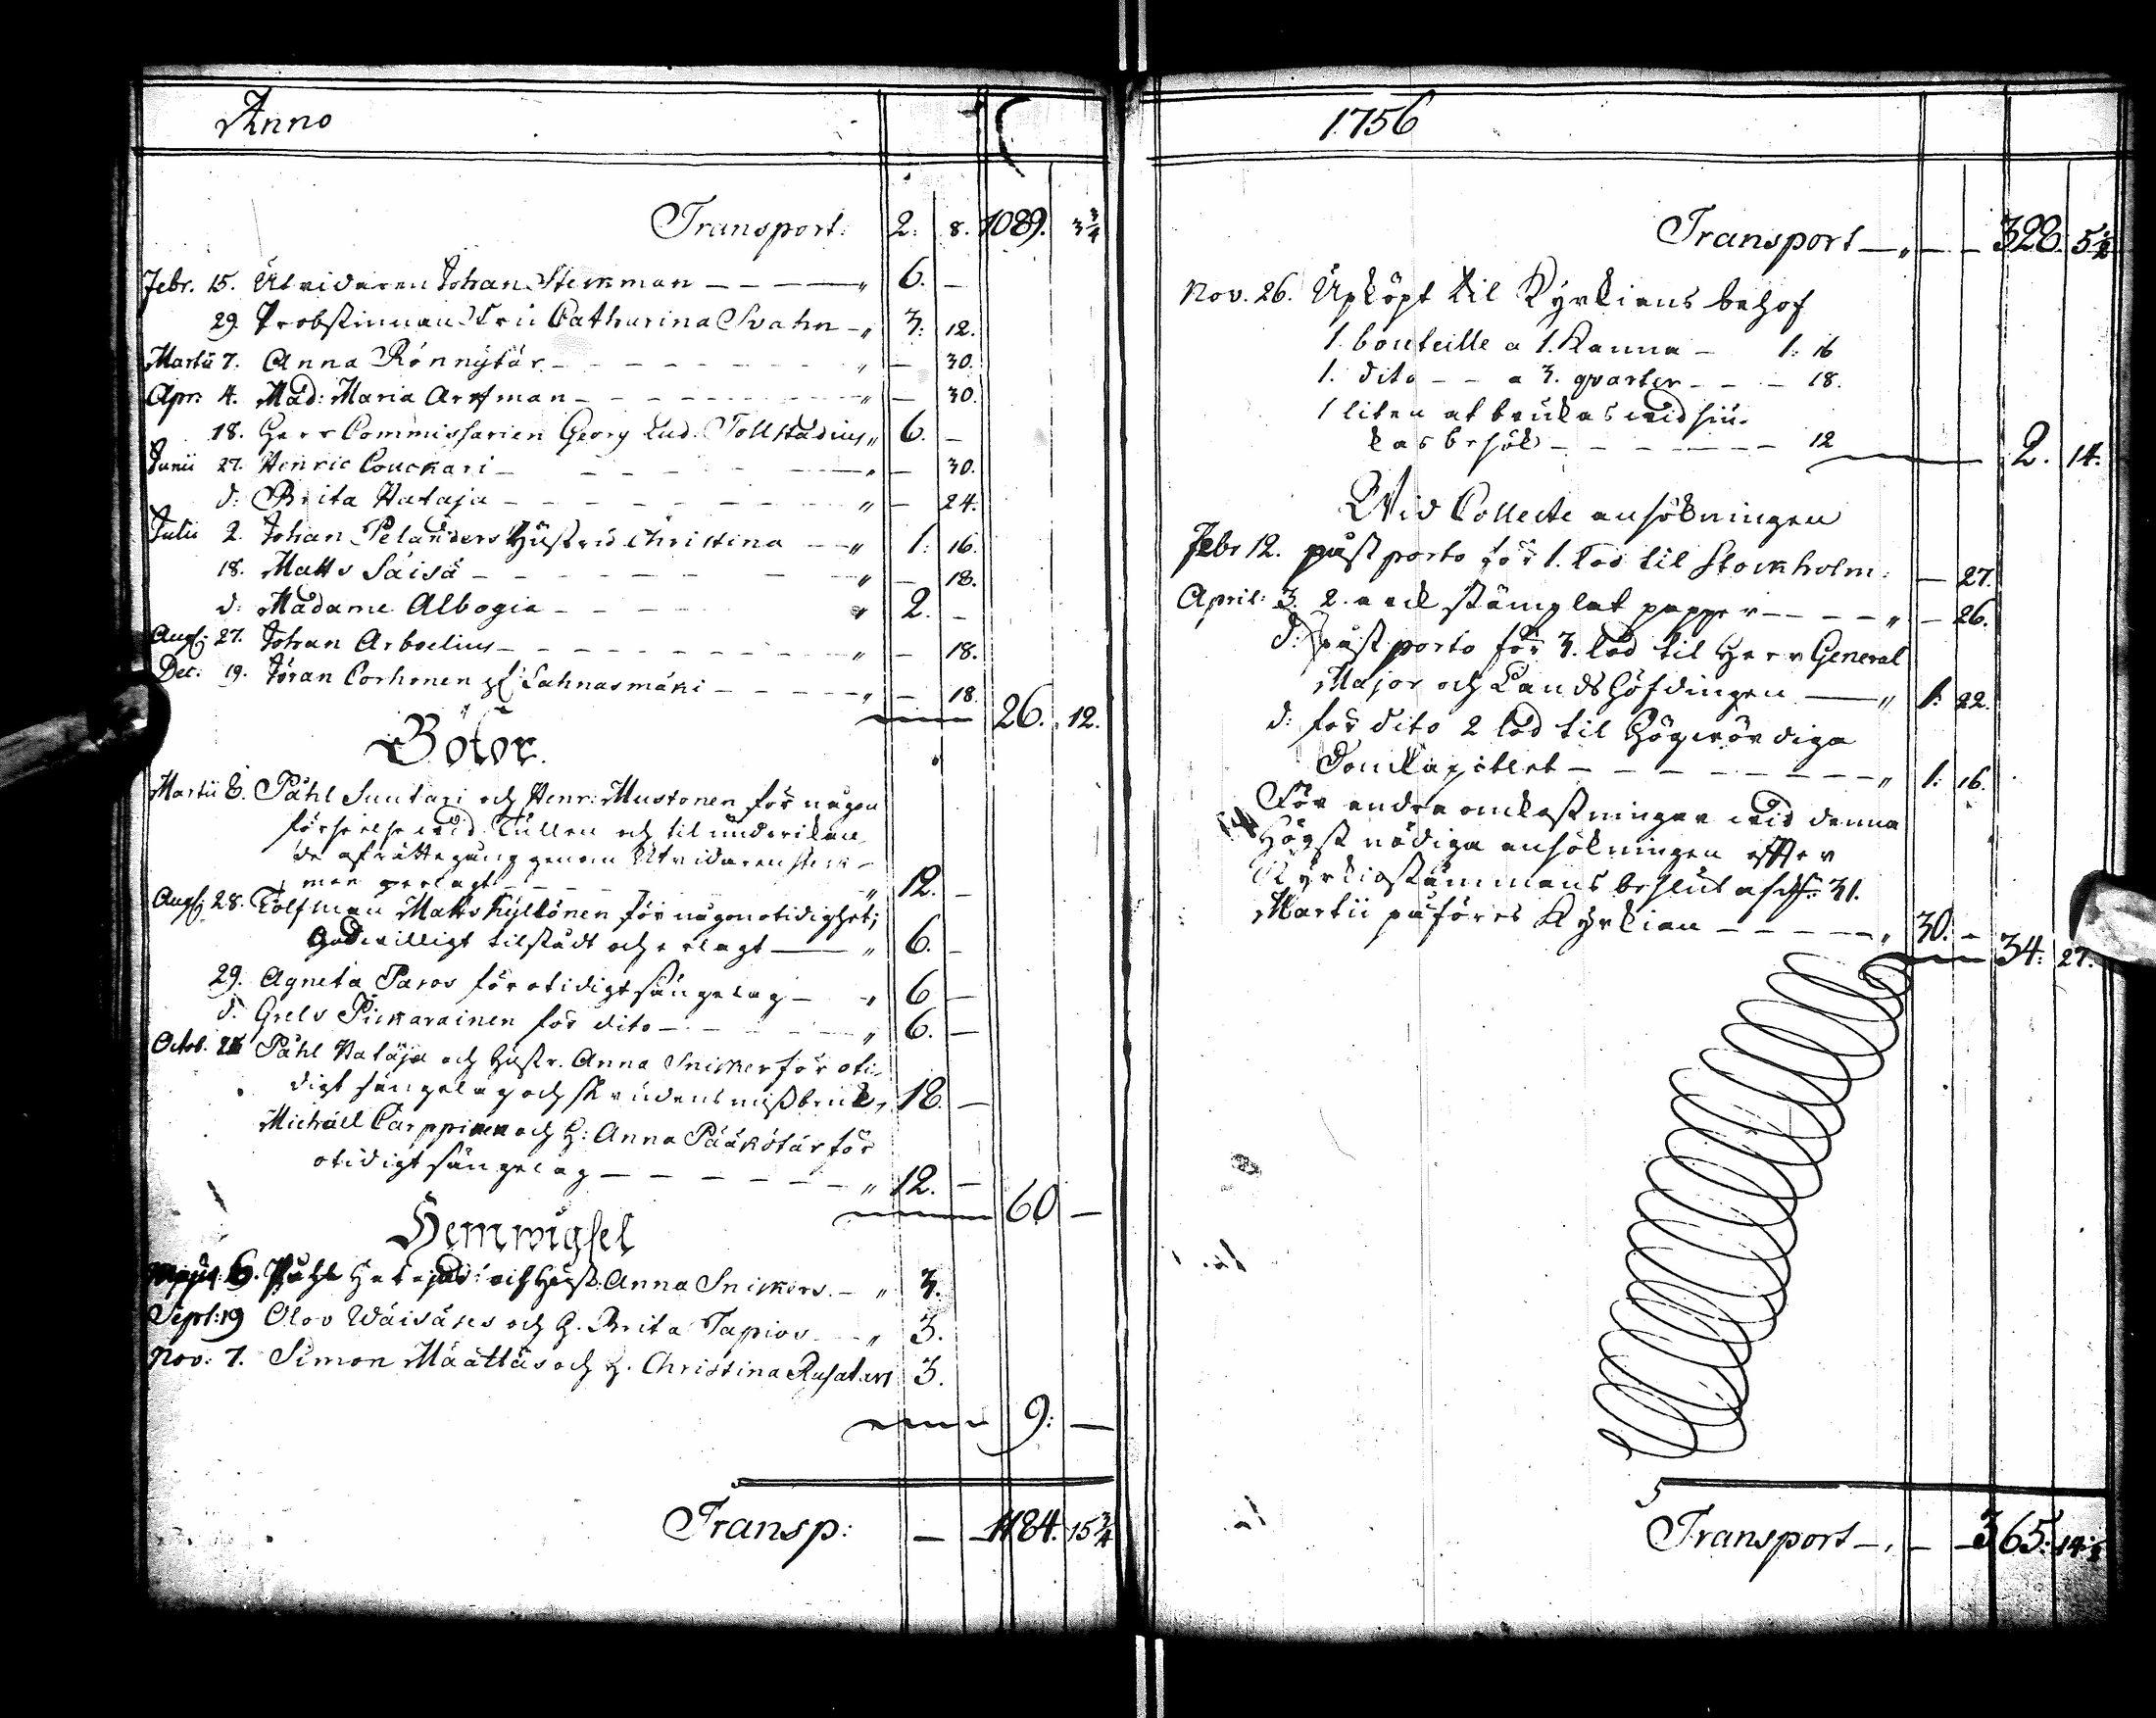 Anno
Transport: 2: 8. 1089. 3 3/4
Febr. 15. Utridaren Johan Sterkman — — — „ 6. –
29. Probstinnan Fru Catharina Svahn – „ 3: 12.
Martii 7. Anna Rönnytär – – – „ – 30.
Apr: 4. Mad: Maria Arfman – – – „ – 30.
18. Herr Commissarien Georg Lud. Tollstadius „ 6. –
Junii 27. Henric Couckari – – – „ – 30.
d: Brita Hataja – – – „ – 24.
Julii 2. Johan Pelanders Hustru Christina – „ 1: 16.
18. Matts Säisä – – – „ – 18.
d: Madame Albogia – – – „ 2. –
Aug: 27. Johan Arboelius – – – „ – 18.
Dec: 19. Jöran Corhonen Lahnasmäki – – – „ – 18
26. 12.
Böter.
Martii 6. Påhl Suutari och Henr: Mustonen för någon
förseelse wid Tullen och til undwikan-
de af rättegång genom Utridaren Sterk-
man erlagt – – „ 12. –
Aug: 28. Tolfman Matts Kyllönen för någon otidighet;
Godwilligt tilstådt och erlagt — „ 6. –
29. Agneta Paros för otidigt sängelag – „ 6 –
d: Grels Pickarainen för dito – – – „ 6. –
Octob. Påhl Hataja och Hustr. Anna Snicker för oti-
digt sängelag och skrudens missbruk „ 18. –
Michaël Carppinen och H: Anna Pääkötär för
otidigt sängelag – – – „ 12. –
60 –
Hemwigsel
6. Påhl Hatajas och Hust. Anna Snickers. – „ 3.
Sept: 19 Olov Wäisänes och H. Brita Tapios – „ 3.
Nov: 7. Simon Määttäs och H. Christina 3.
9: –
Transp: – – 1184. 15 3/4
1756
Transport — „ – – 328. 5 1/2
Nov. 26. Upköpt til Kyrkians behof
1. bouteille a 1. Kanna – 1: 16
1. dito – – a 3. qvarter – – 18.
1 liten at brukas wid siu-
kas besök – – – 12
2. 14.
Wid Collecte ansökningen
Febr 12. påst porto för 1. Lod til Stockholm: – 27.
April: 3. 2. ark stämplat papper – – – „ – 26.
d: påst porto för 3. lod til Herr General
Major och Landshöfdingen — „ 1: 22.
d: för dito 2 lod til Högwördiga
Domkapitlet – – – „ 1: 16.
För andra omkostningar wid denna
Högst nödiga ansökningen efter
Kyrkiostämmans beslut af d. 31.
Martii påföres Kyrkian – – – „ 30. –
34: 27.
Transport – „ – – 365: 14 1/2